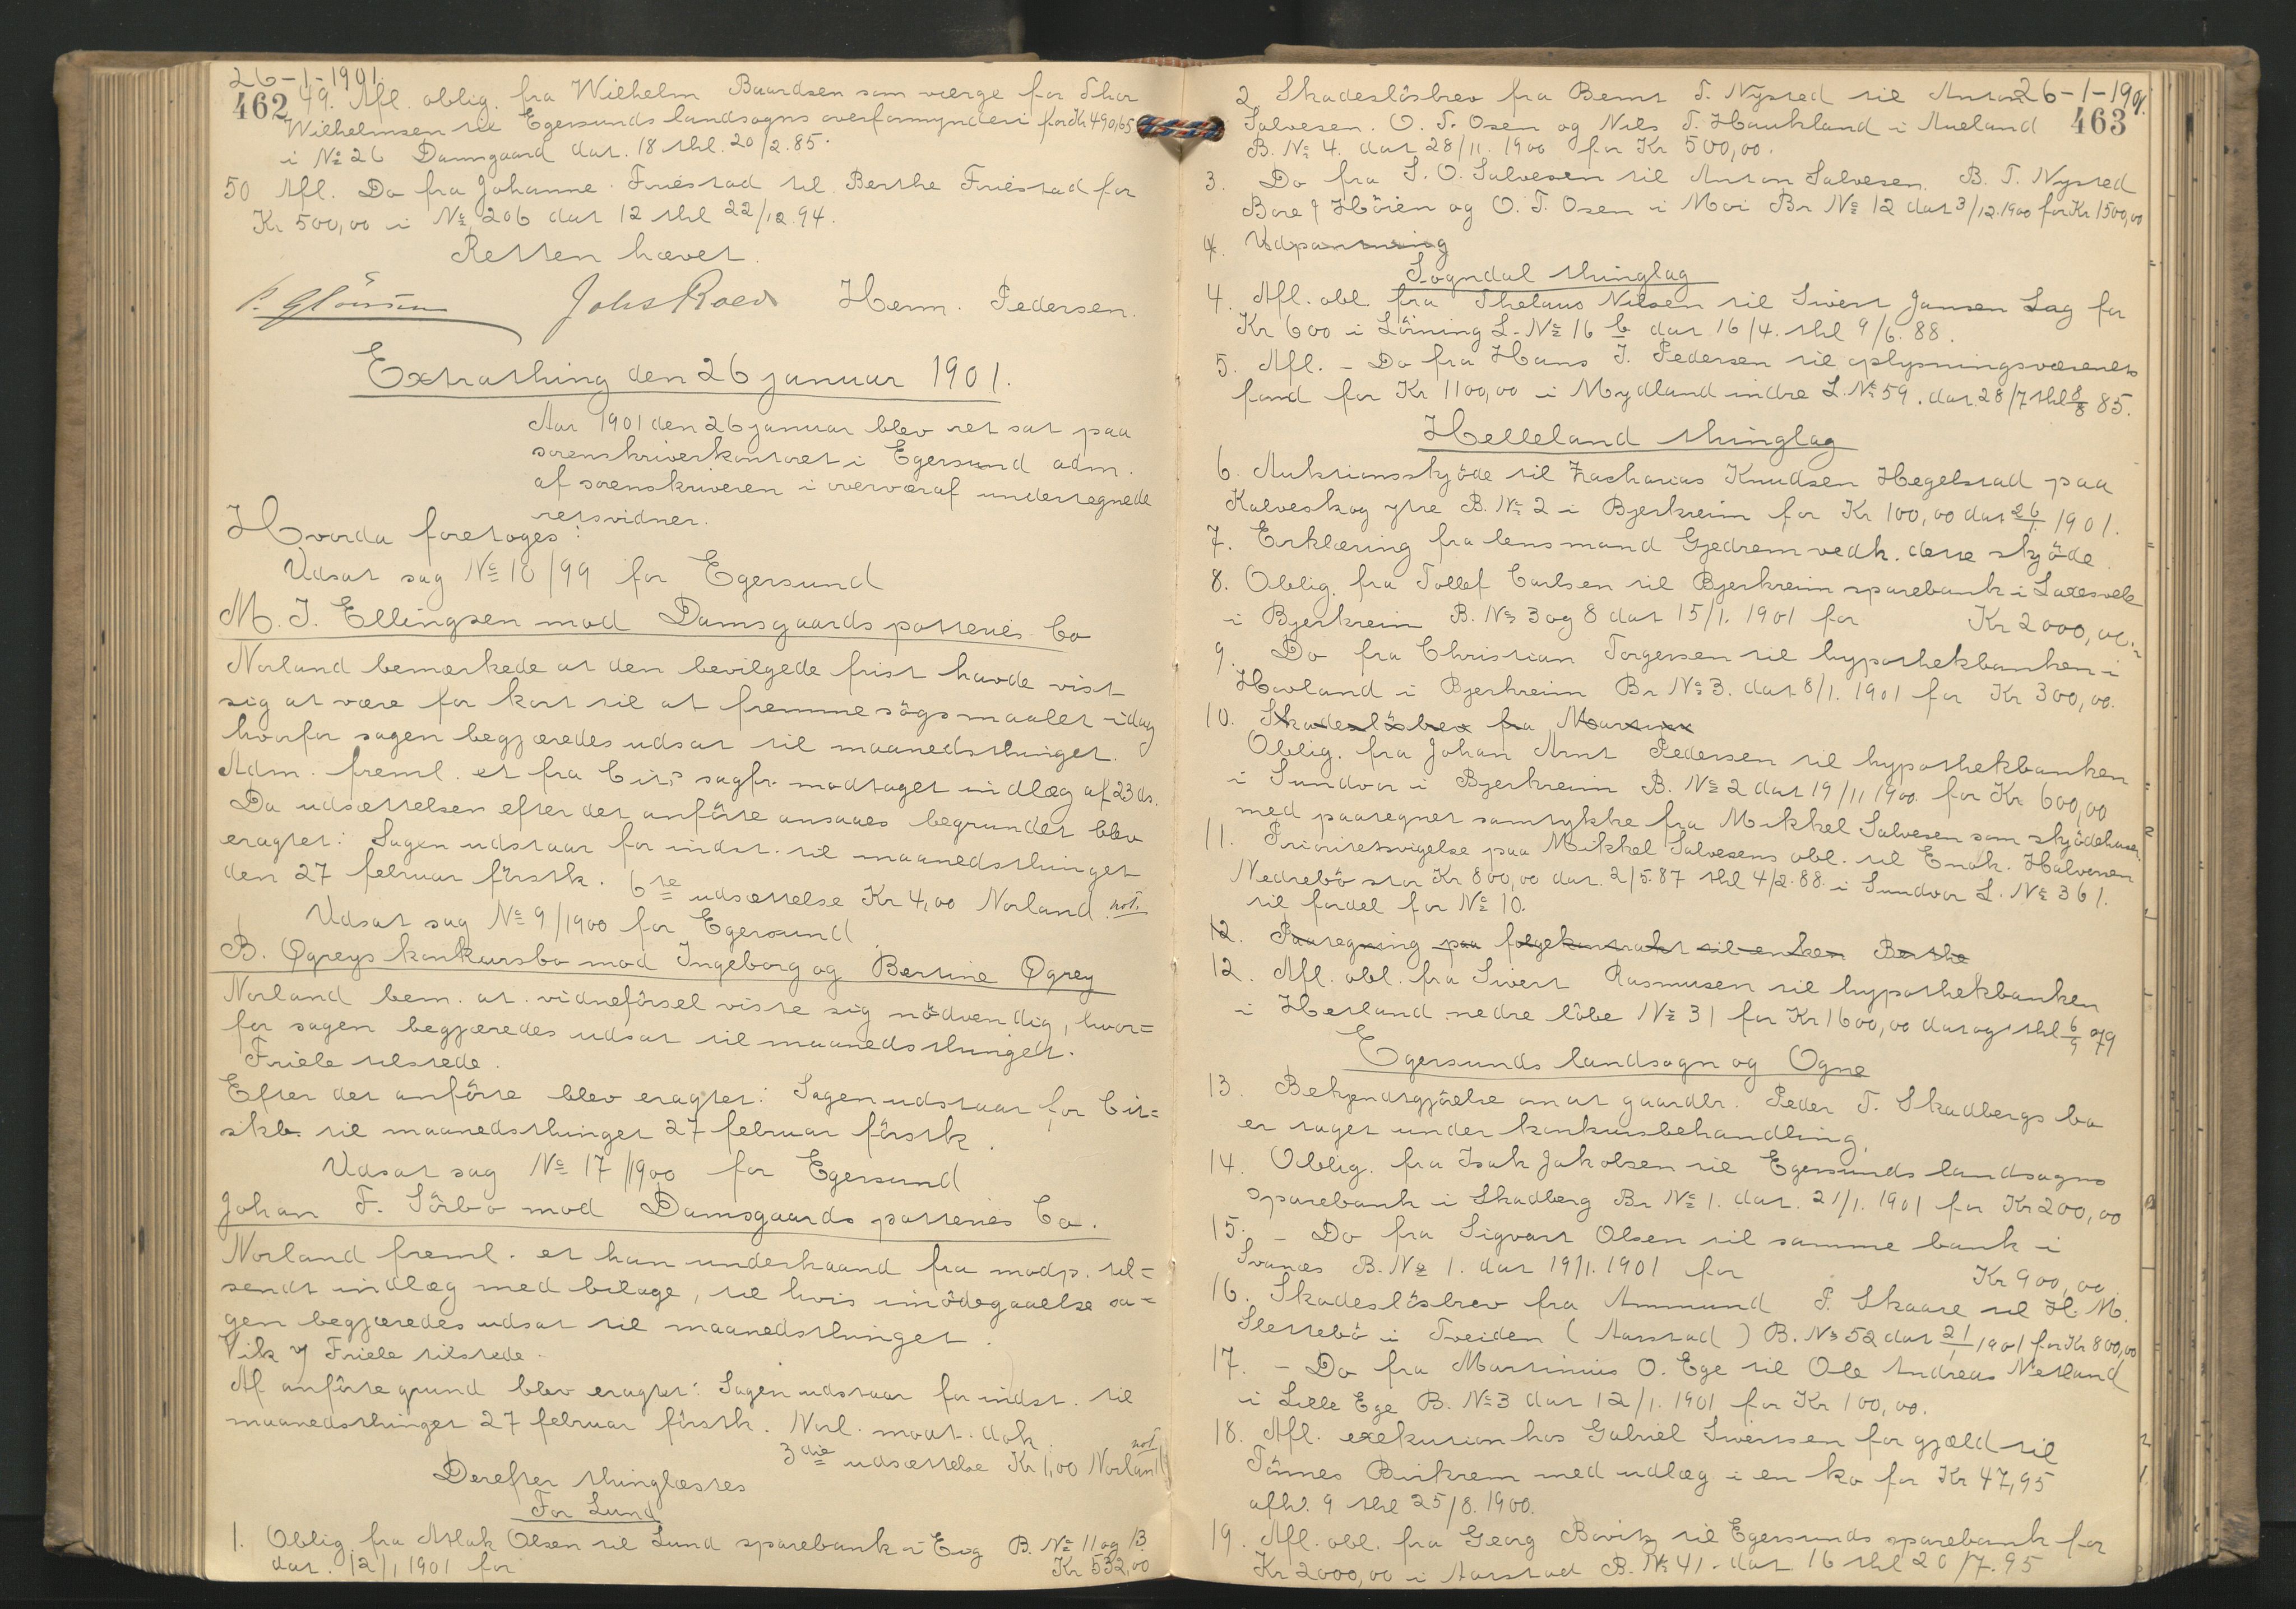 26-1-1901.
462
49. Afl. oblig. fra Wilhelm Baardsen som værge for Thor
Wilhelmsen til Egersunds landsogns overformynderi for Kr 490,65
i № 26 Damsgaard dat. 18 thl. 20/2.85.
50 Afl. Do fra Johanne Friestad til Berthe Friestad for
Kr 500,00 i № 206 dat 12 thl 22/12.94.
Retten hævet.
Johs Roed Herm. Pedersen.
Extrathing den 26 januar 1901.
Aar 1901 den 26 januar blev ret sat paa
sorenskriverkontoret i Egersund adm.
af sorenskriveren i overvær af undertegnede
retsvidner.
Hvorda foretoges:
Udsat sag № 10/99 for Egersund
M. I. Ellingsen mod Damsgaards potteries Co
Norland bemærkede at den bevilgede frist havde vist
sig at være for kort til at fremme søgsmaalet idag
hvorfor sagen begjæredes udsat til maanedsthinget.
Adm. freml. et fra Cit.s sagfr. modtaget indlæg af 23 ds.
Da udsættelsen efter det anførte ansaaes begrundet blev
eragtet: Sagen udstaar for indst. til maanedsthinget
den 27 februar førstk. 6te udsættelse Kr 4,00 Norland not.
Udsat sag № 9/1900 for Egersund
B. Øgreys konkursbo mod Ingeborg og Bertine Øgrey
Norland bem. at vidneførsel viste sig nødvendig, hvor=
for sagen begjæredes udsat til maanedsthinget.
Friele tilstede.
Efter det anførte blev eragtet: Sagen udstaar for Cit=
skb. til maanedsthinget 27 februar førstk.
Udsat sag № 17/1900 for Egersund
Johan F. Sørbø mod Damsgaards potteries Co.
Norland freml. et ham underhaand fra modp. til=
sendt indlæg med bilage, til hvis imødegaaelse sa=
gen begjæredes udsat til maanedsthinget.
Vik v/ Friele tilstede.
Af anførte grund blev eragtet: Sagen udstaar for indst. til
maanedsthinget 27 februar førstk. Norl. modt. dok.
3die udsættelse Kr 1,00 Norland not
Derefter thinglæstes
For Lund
1. Oblig. fra Atlak Olsen til Lund sparebank i Eig B. № 11 og 13
dat. 12/1 1901 for Kr 532,00
26-1-1901.
463
2 Skadesløsbrev fra Bernt T. Nysted til Anton
Salvesen. O. T. Osen og Nils T. Haukland i Aueland
B. № 4. dat 28/11. 1900 for Kr 500,00.
3. Do fra S. O. Salvesen til Anton Salvesen. B. T. Nysted
Bore J Høien og O. T. Osen i Moi Br № 12 dat 3/12.1900 for Kr 1500,00
4. Udpantning
Sogndal thinglag
4. Afl. obl. fra Thelaus Nilsen til Sivert Jansen Log for
Kr 600 i Løining L. № 16 b dat 16/4. thl 9/6.88.
5. Afl. - Do fra Hans I. Pedersen til oplysningsvæsenets
fond for Kr 1100,00 i Mydland indre L. № 59. dat. 28/7 thl 8/8 85.
Helleland thinglag
6. Auktionsskjøde til Zacharias Knudsen Hegelstad paa
Kalveskog ytre B. № 2 i Bjerkreim for Kr 100,00 dat 26/1 1901.
7. Erklæring fra lensmand Gjedrem vedk. dette skjøde
8. Oblig. fra Tollef Carlsen til Bjerkreim sparebank i Laxesvele
i Bjerkreim B. № 3 og 8 dat 15/1. 1901 for Kr 2000,00.
9. Do fra Christian Torgersen til hypothekbanken i
Hovland i Bjerkreim Br № 3. dat 8/1. 1901 for Kr 300,00.
10. Skadesløsbrev fra Martin
Oblig. fra Johan Arnt Pedersen til hypothekbanken
i Sundvor i Bjerkreim B. № 2 dat 19/11 1900. for Kr 600,00
med paategnet samtykke fra Mikkel Salvesen som skjødehaver.
11. Prioritetsvigelse paa Mikkel Salvesens obl. til Enok. Halvorsen
Nedrebø stor Kr 800,00 dat. 2/5.87 thl 4/2.88. i Sundvor L. № 361.
til fordel for № 10.
12. Paategning paa følgekontrakt til enken Berthe
12. Afl. obl. fra Sivert Rasmusen til hypothekbanken
i Hetland nedre løbe № 31 for Kr 1600,00 dat og thl 6/9 79
Egersunds landsogn og Ogne
13. Bekjendtgjøelse om at gaardbr. Peder T. Skadbergs bo
er taget under konkursbehandling.
14. Oblig. fra Isak Jakobsen til Egersunds landsogns
sparebank i Skadberg Br № 1. dat. 21/1. 1901 for Kr 200,00
15. - Do fra Sigvart Olsen til samme bank i
Svanes B. № 1. dat 19/1. 1901 for Kr 900,00.
16. Skadesløsbrev fra Ammund P. Skaare til H. M.
Slettebø i Tveiden (Aarstad) B. № 52 dat 21/1 1901 for Kr 800,00
17. - Do fra Martinius O. Ege til Ole Andreas Netland
i Lille Ege B. № 3 dat 12/1. 1901 for Kr 100,00.
18. Afl. exekution hos Gabriel Sivertsen for gjæld til
Tønnes Birkrem med udlæg i en ko for Kr 47,95
afh. 9 thl 25/8.1900.
19. Afl. obl. fra Georg Bovitz til Egersunds sparebank for
Kr 2000,00 i Aarstad B. № 41. dat 16 thl 20/7.95